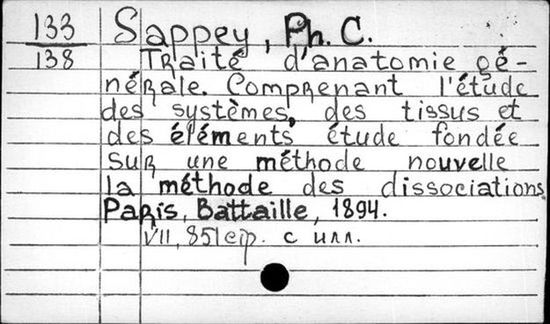 133 Sappey, Ph. C.
138 Traité d'anatomie gé-
nérale. Comprenant l'étude
des systèmes, des tissus et
des éléments étude fondée
sur une méthode nouvelle
la méthode des dissociations
Paris, Battaille, 1894.
VII, 851 стр. с илл.